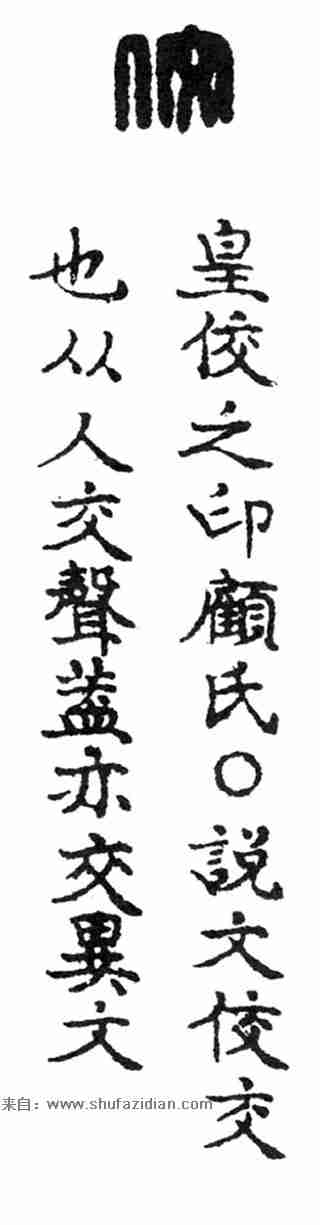 佼
皇佼之印顧氏〇說文佼交
也从人交聲葢亦交異文
来自：www.shufazidian.com